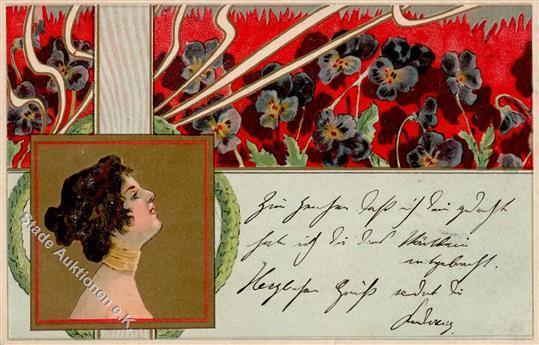 Zum Zeichen daß ich dein gedacht
hab ich dir das Kärtlein
mitgebracht.
Herzlichen Gruß sendet Dir
Ludwig
Stade Auktionen e.K.